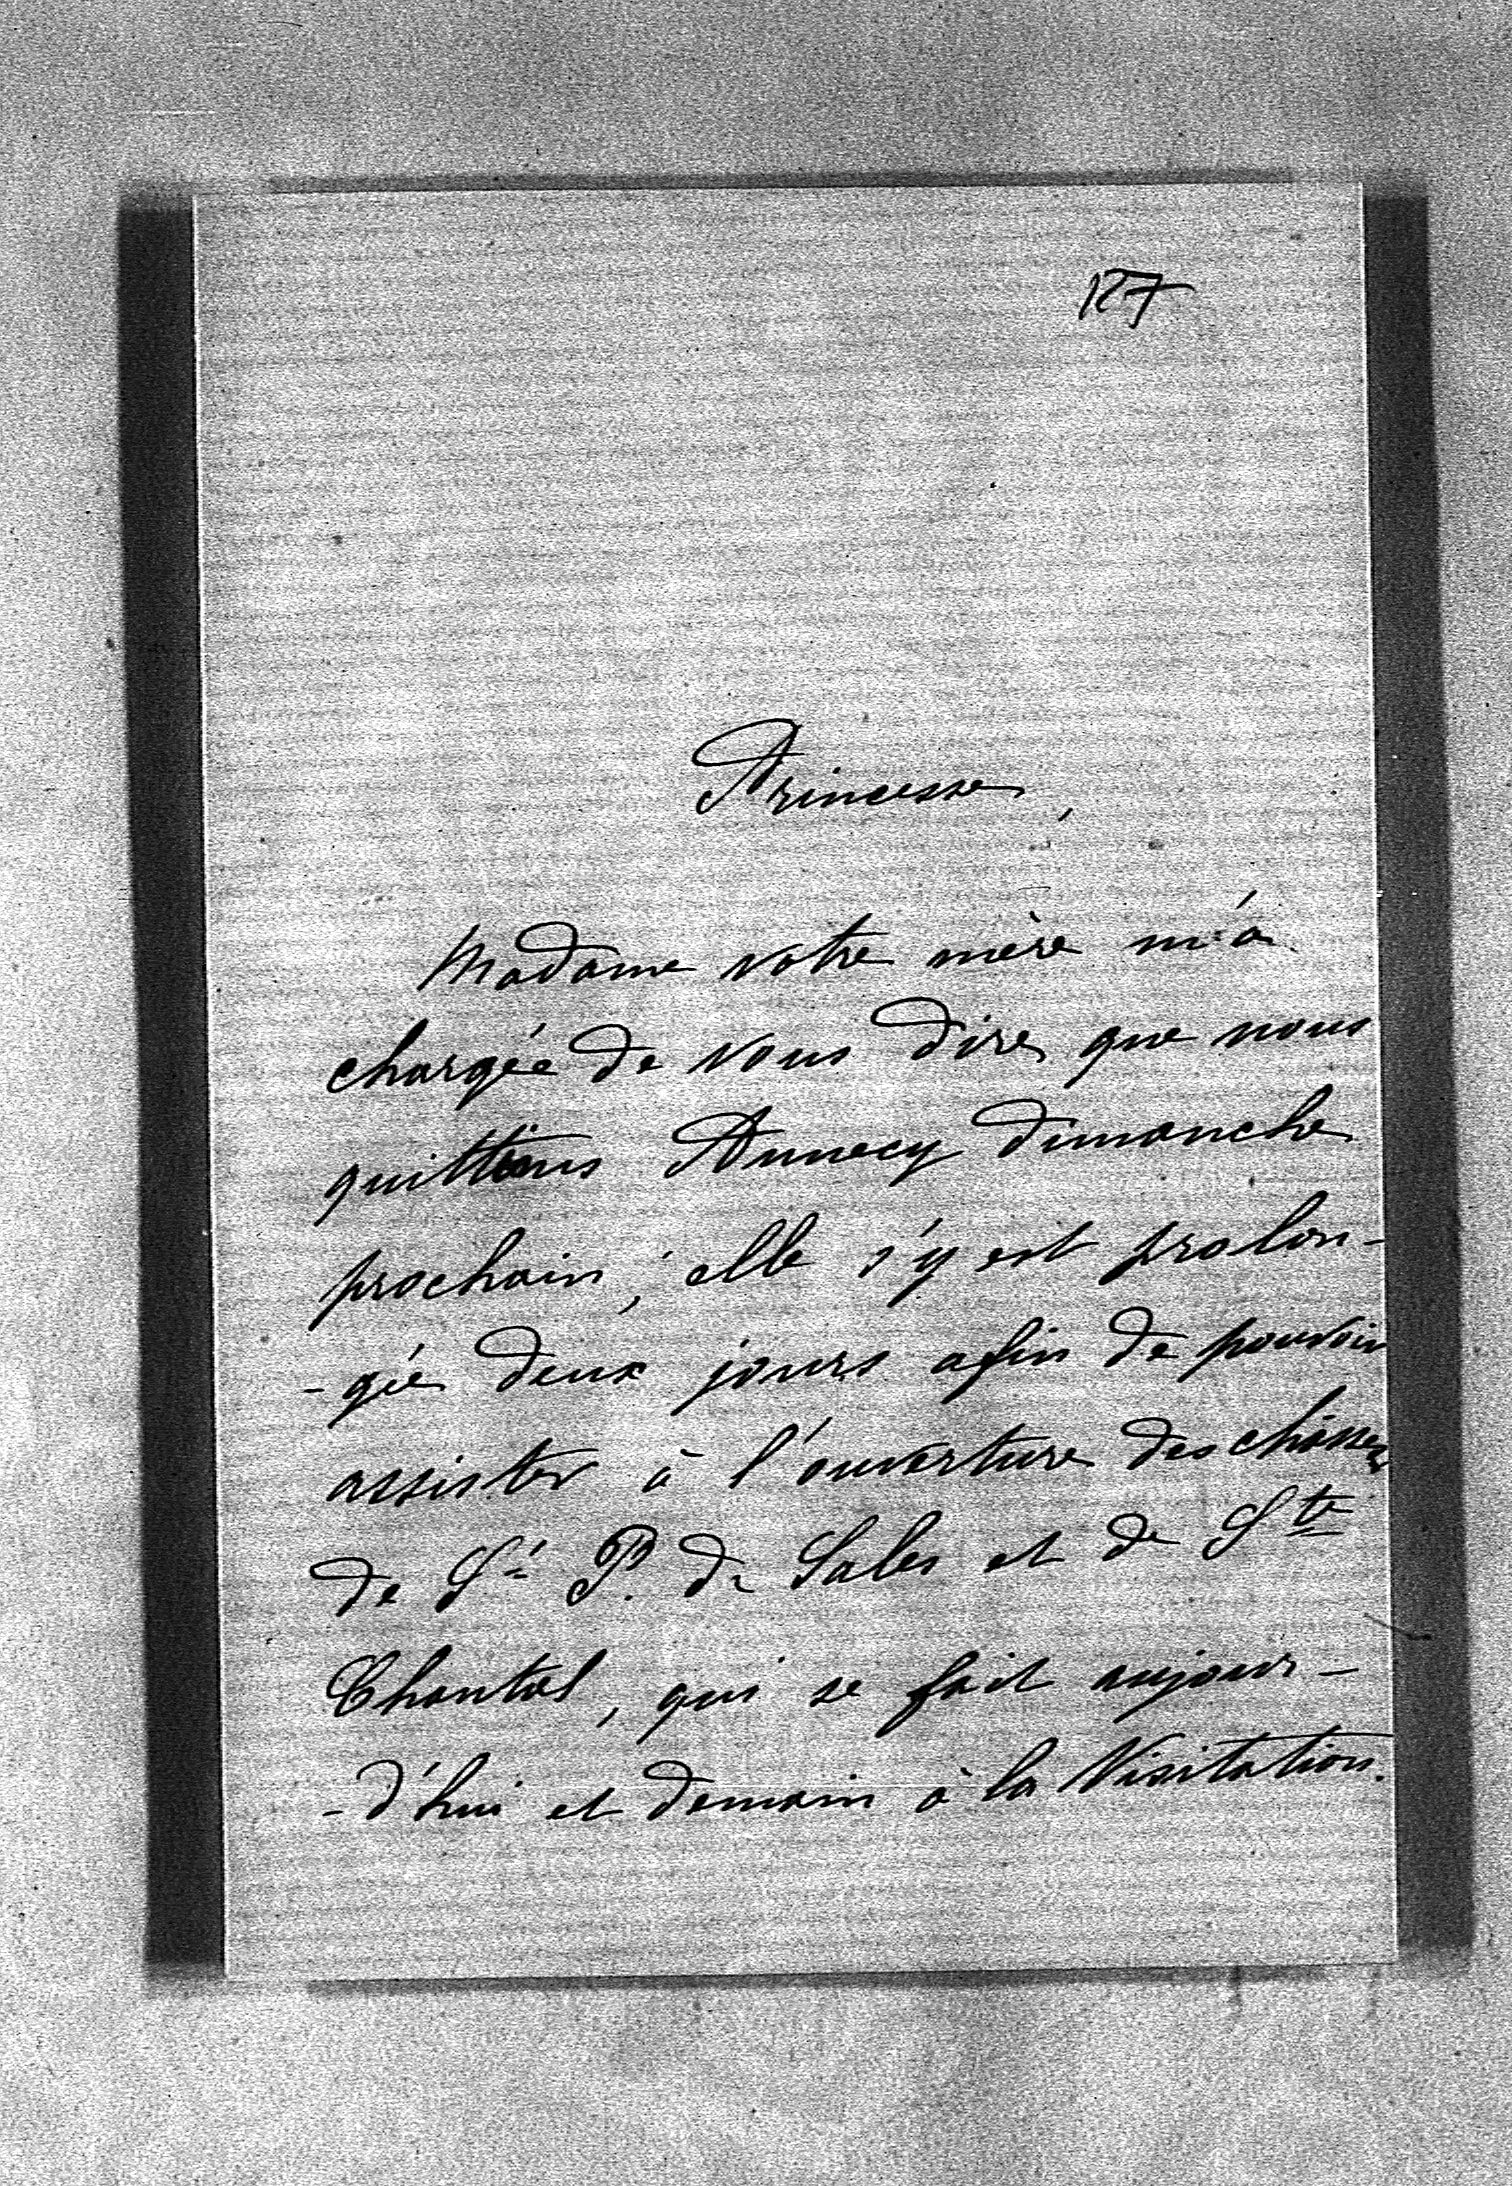 127
Princesse,
Madame votre mère m'a
chargée de vous dire que nous
quittons Annecy dimanche
prochain, elle s'y est prolon-
-gée deux jours afin de pouvoir
assister à l'ouverture des châsses
de St P. de Sales et de Ste
Chantal, qui se fait aujour-
-d'hui et demain à la Visitation.